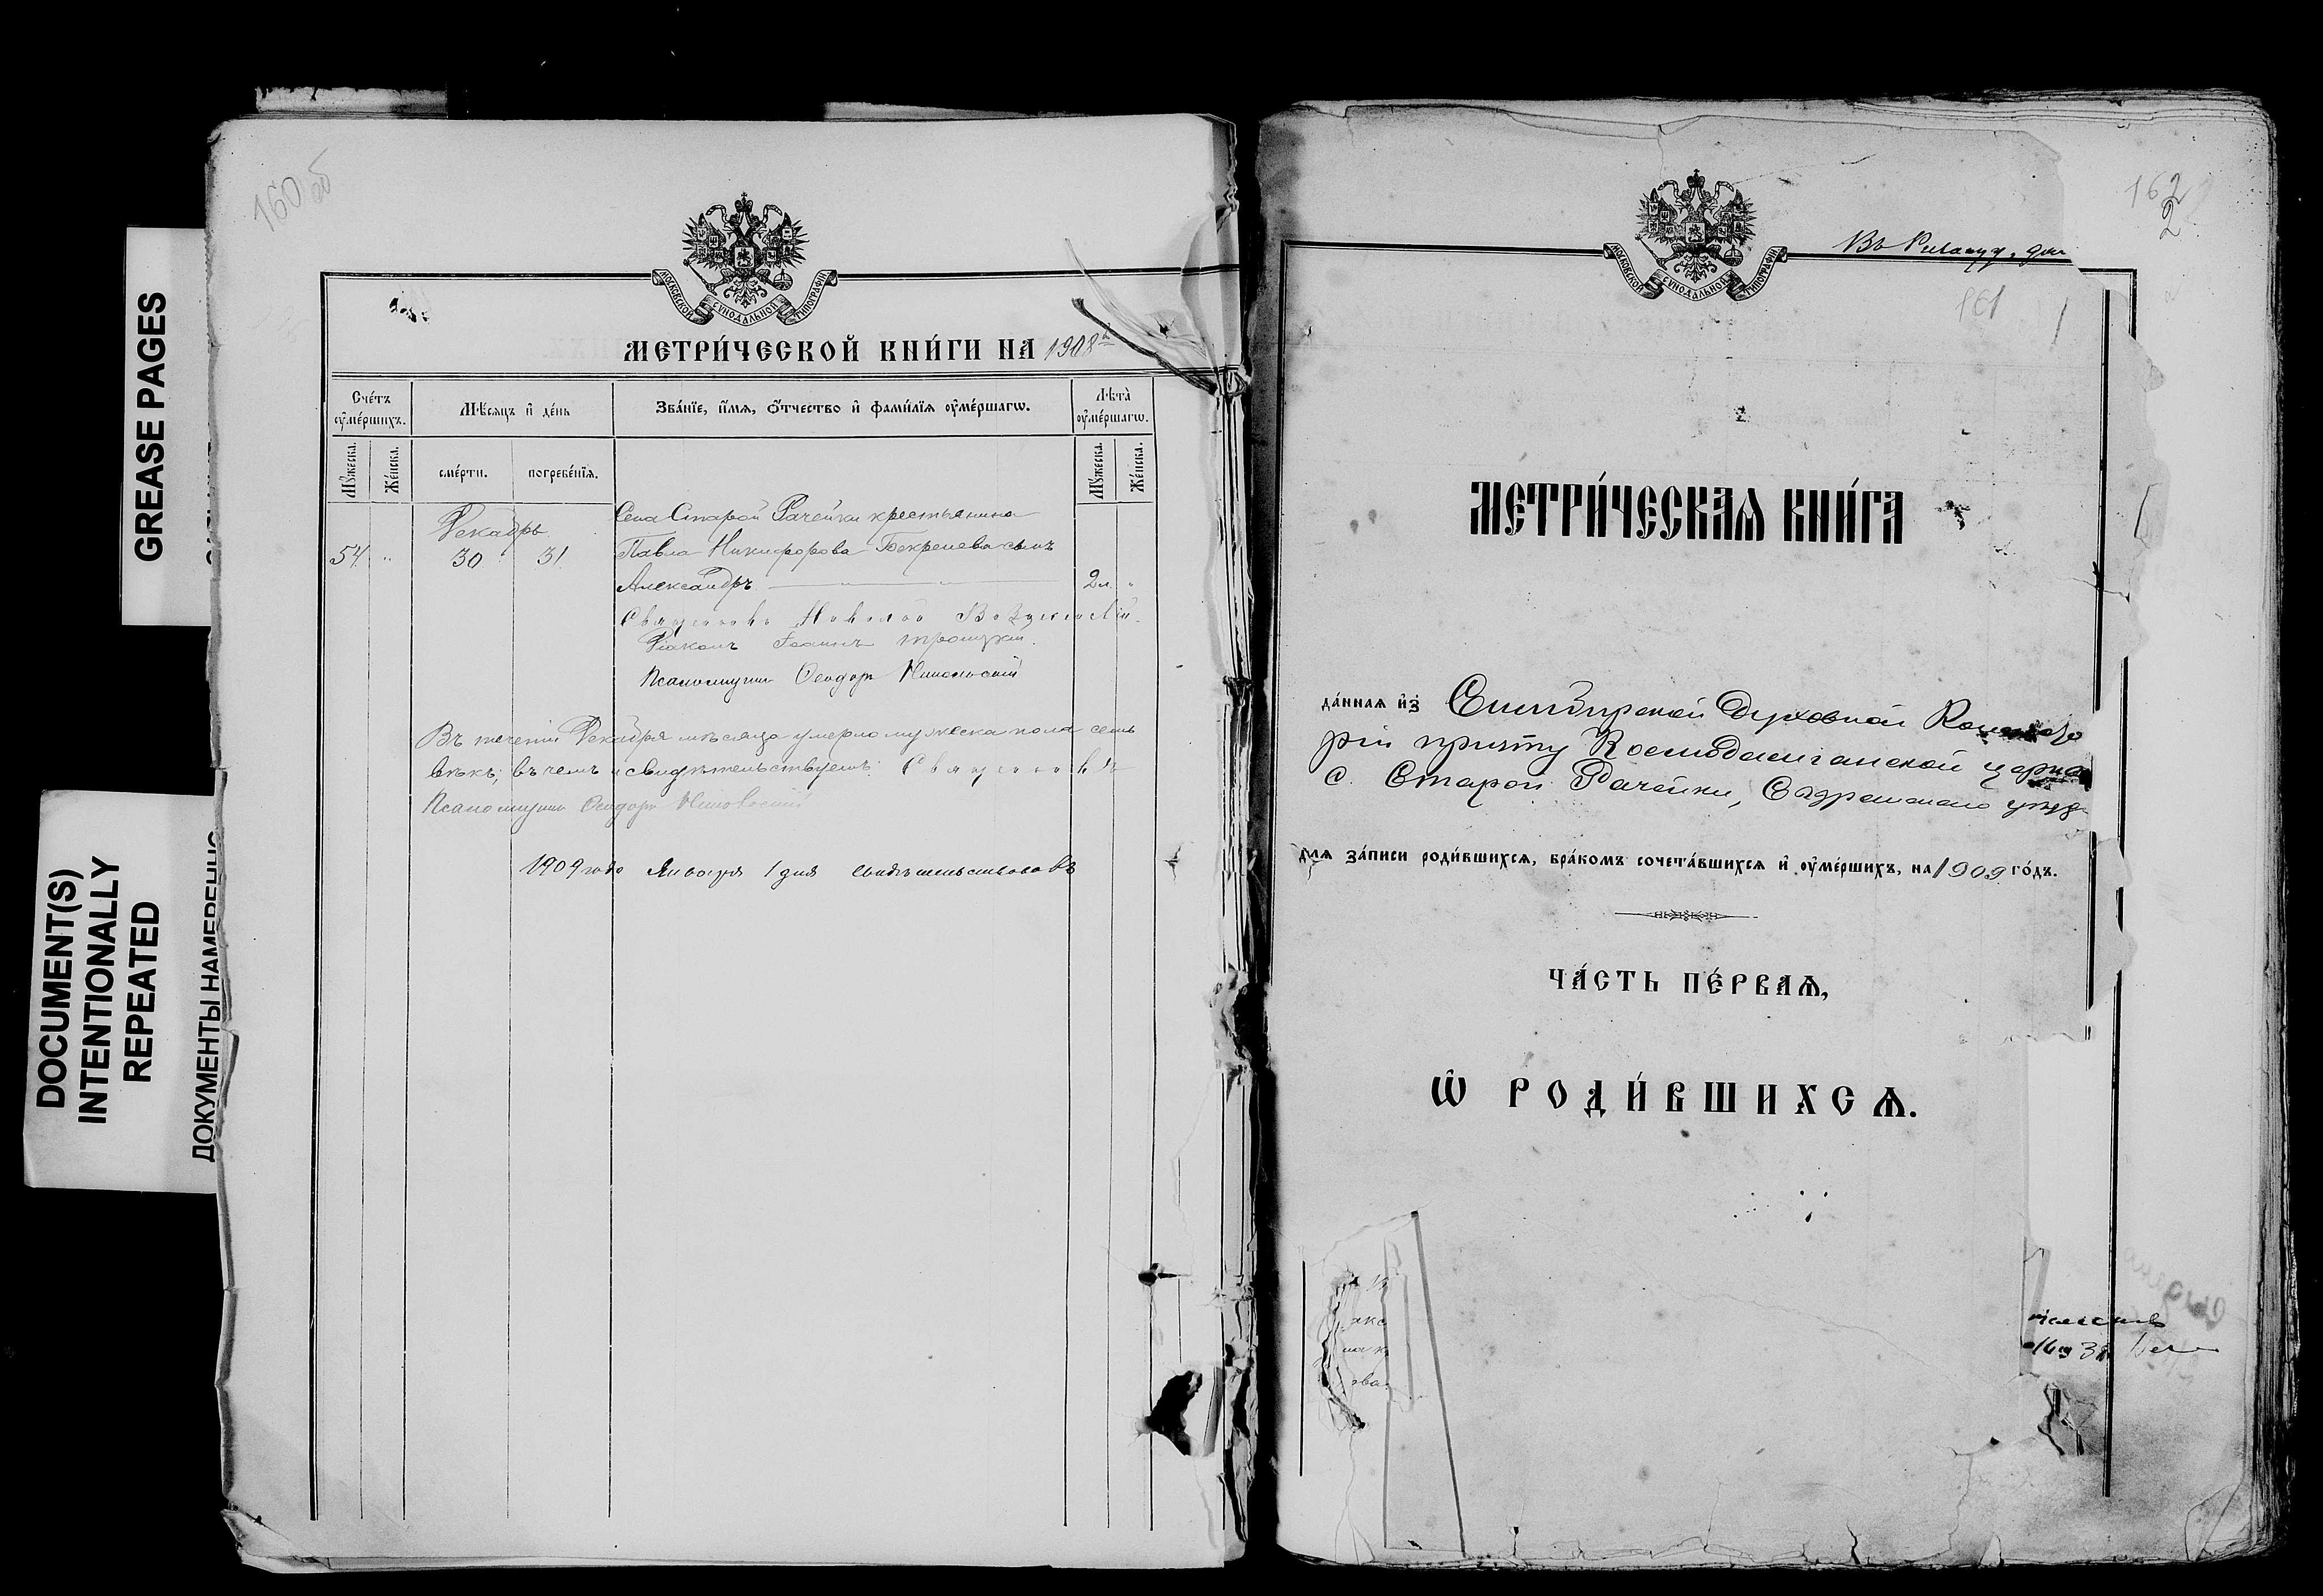 GREASE PAGES
DOCUMENT(S)
INTENTIONALLY
REPEATED
ДОКУМЕНТЫ НАМЕРЕННО
160 об
МОСКОВСКОЙ СѴНОДАЛЬНОЙ ТИПОГРАФІИ
МЕТРИ́ЧЕСКОЙ КНИ́ГИ НА 1908 й
Сче́тъ оумершихъ.
Мѣсяцъ и де́нь
Зва́нїе, и́мя, ѻ́тчество и фами́лїя оуме́ршагѡ.
Лѣта̀ оуме́ршагѡ.
Мꙋжеска.
Же́нска.
сме́рти.
погребе́нїя.
Мꙋжеска.
Же́нска.
Декабрь
Села Старой Рачейки крестьянина
54 " 30 31 Павла Никифорова Бекренева сынъ
Александръ 2 л "
Священникъ Николай
Діаконъ Іоаннъ Троицкій.
Псаломщикъ Ѳеодоръ Никольскій
Въ теченіи Декабря мѣсяца умерло мужеска пола семь
вѣкъ; въ чемъ и свидѣтельствуемъ: Священникъ
Псаломщикъ Ѳеодоръ Никольскій
1909 года Января 1 дня свидѣтельствовалъ
162
2
МОСКОВСКОЙ СѴНОДАЛЬНОЙ ТИПОГРАФІИ
Въ
161
1
МЕТРИ́ЧЕСКАЯ КНИ́ГА
да́нная из Симбирской Духовной Консисто
ріи причту Космодаміанской церкви
с. Старой Рачейки, Сызранскаго уѣзда
для за́писи роди́вшихся, бра́комъ сочета́вшихся и оуме́ршихъ, на 1909 го́дъ.
ЧА́СТЬ ПЕ́РВАЯ,
Ѡ РОДИ́ВШИХСЯ.